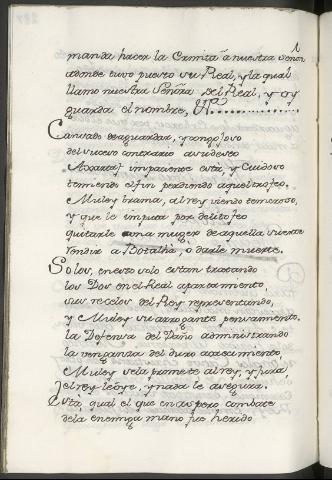 manda hacer la Ermita à nuestra Señora
adonde tuvo puesto su Real, y la qual
llamo nuestra Señora del Real, y oy
guarda el nombre,
Cansado de aguardar, y congojoso
del suceso contrario a su deseo
impaciente està y Cuidoso
temiendo el fin perdiendo aquel trofeo.
Muley brama, al rey viendo temeroso,
y que le impute por delito feo
quitarle a una muger de aquella suerte
rendir a Botalha, o darle muerte.
Solos, en esto solo estan tratando
los Dos en el Real apartamiento,
sus recelos del Rey representando,
y Muley su arrogante pensamiento,
la Defensa del Daño administrando
la venganza del duro acaecimiento
Muley se la promete al rey, y jura,
el rey le oye, y nada le asegura.
Està qual el que en aspero combate
de la enemiga mano fue herido